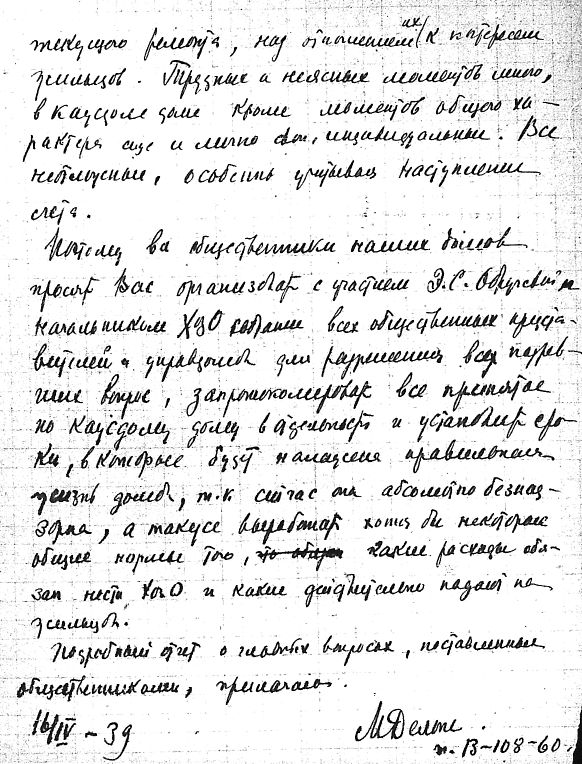 текущего ремонта, над отношением их к интересам
жильцов. Трудных и неясных моментов много,
в каждом доме кроме моментов общего ха-
рактера еще и лично свои, индивидуальные. Все
неотложные, особенно учитывая наступление
лета.
Поэтому все общественники наших домов
просят Вас организовать с участием Э.С. и
начальником ХЗО собрание всех общественных предста-
вителей и управдомов для разрешения всех назрев-
ших вопрос, запротоколировать все принятое
по каждому дому в отдельности и установить сро-
ки, в которые будет налажена правильная
жизнь домов, т.к сейчас она абсолютно безнад-
зорна, а также выработать хотя бы некоторые
общие нормы того, какие расходы обя-
зан нести ХОЗО и какие действительно падают на
жильцов.
Подробный отчет о главных вопросах, поставленных
общественниками, прилагаю.
16/IV - 39
т. В-108-60.